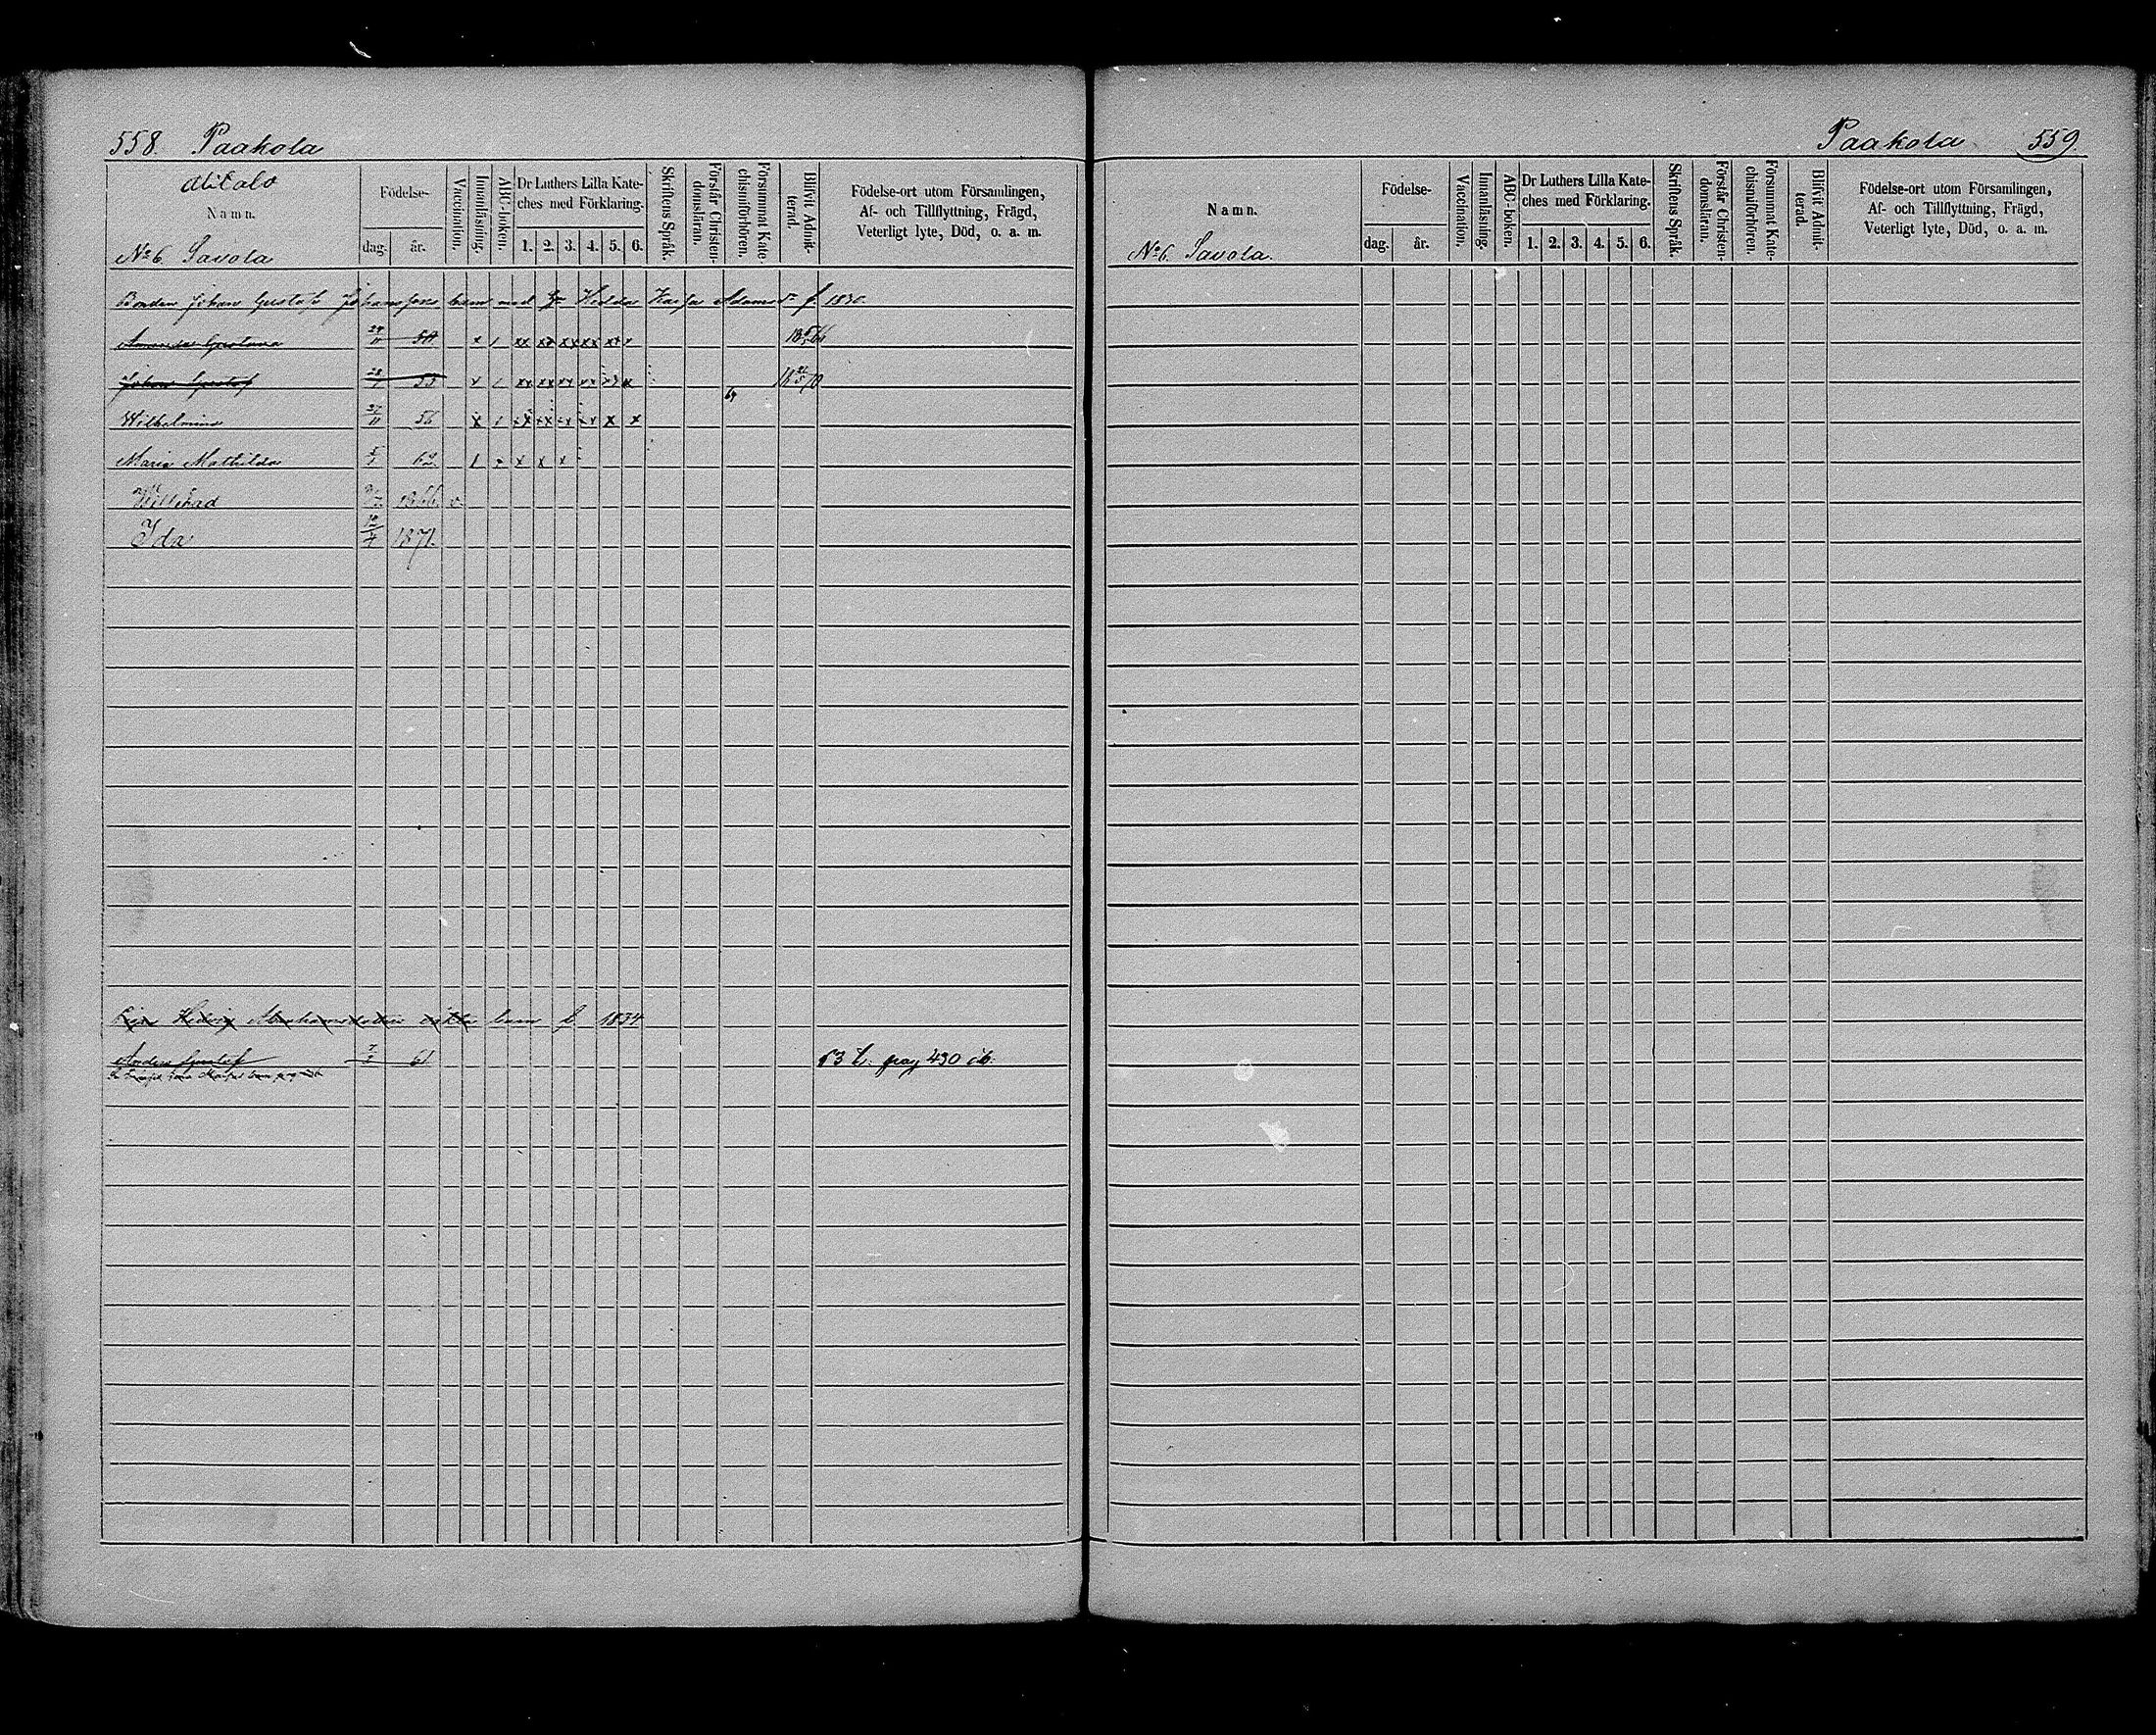 558. Paakola
Alitalo
Namn.
No 6. Savola
Födelse-
dag. år.
Vaccination.
Innanläsning.
ABC-boken.
Dr Luthers Lilla Kate-
ches med Förklaring.
1. 2. 3. 4. 5. 6.
Skriftens Språk.
Förstår Christen-
domsläran.
Försummat Kate-
chismiförhören.
Blifvit Admit-
terad.
Födelse-ort utom Församlingen,
Af- och Tillflyttning, Frägd,
Veterligt lyte, Död, o. a. m.
Bonden Johan Gustaf Johanssons barn med Hedda Kaisa Adamsdr f. 1830.
Amanda Gustava
Johan Gustaf 53
Wilhelmina 27/11 56 x / x x
Maria Mathilda 62 x x x
Willehad 1866 v.
Ida 1871.
Hedvig Abrahamsdotters oäkta barn f. 1834
Anders Gustaf 7/2 61 63 t. pag 490 ib.
Paakola 559.
Namn.
No 6. Savola.
Födelse-
dag. år.
Vaccination.
Innanläsning.
ABC-boken.
Dr Luthers Lilla Kate-
ches med Förklaring.
1. 2. 3. 4. 5. 6.
Skriftens Språk.
Förstår Christen-
domsläran.
Försummat Kate-
chismiförhören.
Blifvit Admit-
terad.
Födelse-ort utom Församlingen,
Af- och Tillflyttning, Frägd,
Veterligt lyte, Död, o. a. m.